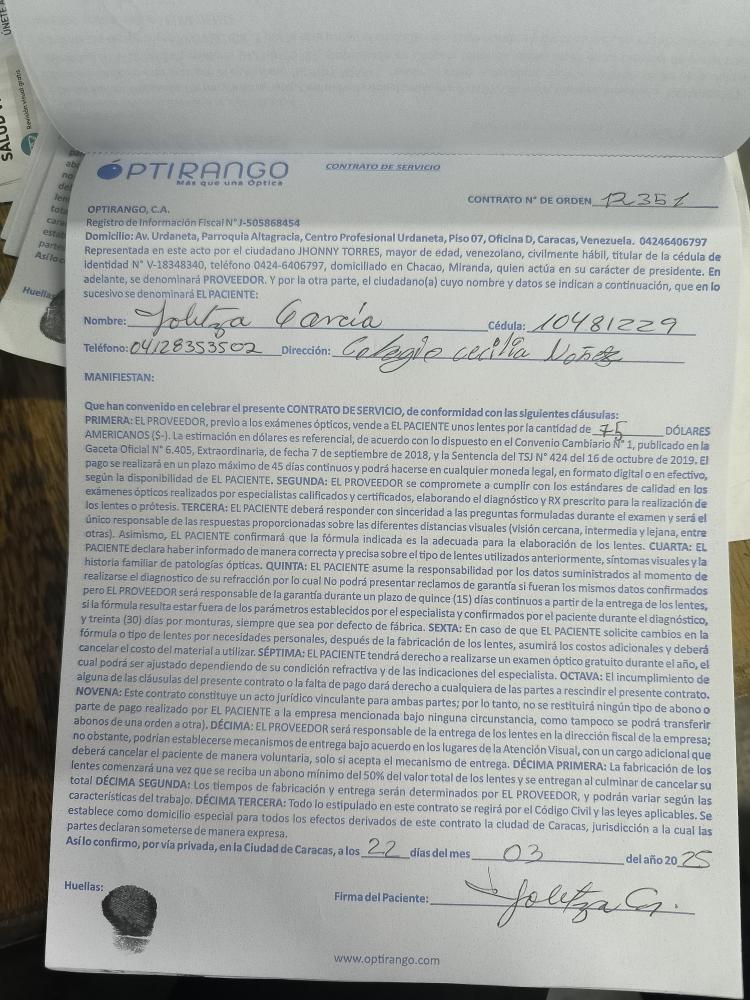 ÚNETE A
SALUD V
Revisión visual gratis
OPTIRANGO
Más que una Óptica
CONTRATO DE SERVICIO
CONTRATO N° DE ORDEN 12351
OPTIRANGO, C.A.
Registro de Información Fiscal N° J-505868454
Domicilio: Av. Urdaneta, Parroquia Altagracia, Centro Profesional Urdaneta, Piso 07, Oficina D, Caracas, Venezuela. 04246406797
Representada en este acto por el ciudadano JHONNY TORRES, mayor de edad, venezolano, civilmente hábil, titular de la cédula de
identidad N° V-18348340, teléfono 0424-6406797, domiciliado en Chacao, Miranda, quien actúa en su carácter de presidente. En
adelante, se denominará PROVEEDOR. Y por la otra parte, el ciudadano(a) cuyo nombre y datos se indican a continuación, que en lo
sucesivo se denominará EL PACIENTE:
Nombre: Yolitza García Cédula: 10481229
Teléfono: 04128353502 Dirección: Colegio cecilia Nuñez
MANIFIESTAN:
Que han convenido en celebrar el presente CONTRATO DE SERVICIO, de conformidad con las siguientes cláusulas:
PRIMERA: EL PROVEEDOR, previo a los exámenes ópticos, vende a EL PACIENTE unos lentes por la cantidad de 75 DÓLARES
AMERICANOS ($-). La estimación en dólares es referencial, de acuerdo con lo dispuesto en el Convenio Cambiario N° 1, publicado en la
Gaceta Oficial N° 6.405, Extraordinaria, de fecha 7 de septiembre de 2018, y la Sentencia del TSJ N° 424 del 16 de octubre de 2019. El
pago se realizará en un plazo máximo de 45 días continuos y podrá hacerse en cualquier moneda legal, en formato digital o en efectivo,
según la disponibilidad de EL PACIENTE. SEGUNDA: EL PROVEEDOR se compromete a cumplir con los estándares de calidad en los
exámenes ópticos realizados por especialistas calificados y certificados, elaborando el diagnóstico y RX prescrito para la realización de
los lentes o prótesis. TERCERA: EL PACIENTE deberá responder con sinceridad a las preguntas formuladas durante el examen y será el
único responsable de las respuestas proporcionadas sobre las diferentes distancias visuales (visión cercana, intermedia y lejana, entre
otras). Asimismo, EL PACIENTE confirmará que la fórmula indicada es la adecuada para la elaboración de los lentes. CUARTA: EL
PACIENTE declara haber informado de manera correcta y precisa sobre el tipo de lentes utilizados anteriormente, síntomas visuales y la
historia familiar de patologías ópticas. QUINTA: EL PACIENTE asume la responsabilidad por los datos suministrados al momento de
realizarse el diagnostico de su refracción por lo cual No podrá presentar reclamos de garantía si fueran los mismos datos confirmados
pero EL PROVEEDOR será responsable de la garantía durante un plazo de quince (15) días continuos a partir de la entrega de los lentes,
si la fórmula resulta estar fuera de los parámetros establecidos por el especialista y confirmados por el paciente durante el diagnóstico,
y treinta (30) días por monturas, siempre que sea por defecto de fábrica. SEXTA: En caso de que EL PACIENTE solicite cambios en la
fórmula o tipo de lentes por necesidades personales, después de la fabricación de los lentes, asumirá los costos adicionales y deberá
cancelar el costo del material a utilizar. SÉPTIMA: EL PACIENTE tendrá derecho a realizarse un examen óptico gratuito durante el año, el
cual podrá ser ajustado dependiendo de su condición refractiva y de las indicaciones del especialista. OCTAVA: El incumplimiento de
alguna de las cláusulas del presente contrato o la falta de pago dará derecho a cualquiera de las partes a rescindir el presente contrato.
NOVENA: Este contrato constituye un acto jurídico vinculante para ambas partes; por lo tanto, no se restituirá ningún tipo de abono o
parte de pago realizado por EL PACIENTE a la empresa mencionada bajo ninguna circunstancia, como tampoco se podrá transferir
abonos de una orden a otra). DÉCIMA: EL PROVEEDOR será responsable de la entrega de los lentes en la dirección fiscal de la empresa;
no obstante, podrían establecerse mecanismos de entrega bajo acuerdo en los lugares de la Atención Visual, con un cargo adicional que
deberá cancelar el paciente de manera voluntaria, solo si acepta el mecanismo de entrega. DÉCIMA PRIMERA: La fabricación de los
lentes comenzará una vez que se reciba un abono mínimo del 50% del valor total de los lentes y se entregan al culminar de cancelar su
total DÉCIMA SEGUNDA: Los tiempos de fabricación y entrega serán determinados por EL PROVEEDOR, y podrán variar según las
características del trabajo. DÉCIMA TERCERA: Todo lo estipulado en este contrato se regirá por el Código Civil y las leyes aplicables. Se
establece como domicilio especial para todos los efectos derivados de este contrato la ciudad de Caracas, jurisdicción a la cual las
partes declaran someterse de manera expresa.
Así lo confirmo, por vía privada, en la Ciudad de Caracas, a los 22 días del mes 03 del año 2025
Huellas:
Firma del Paciente: Yolitza G.
www.optirango.com
Huellas